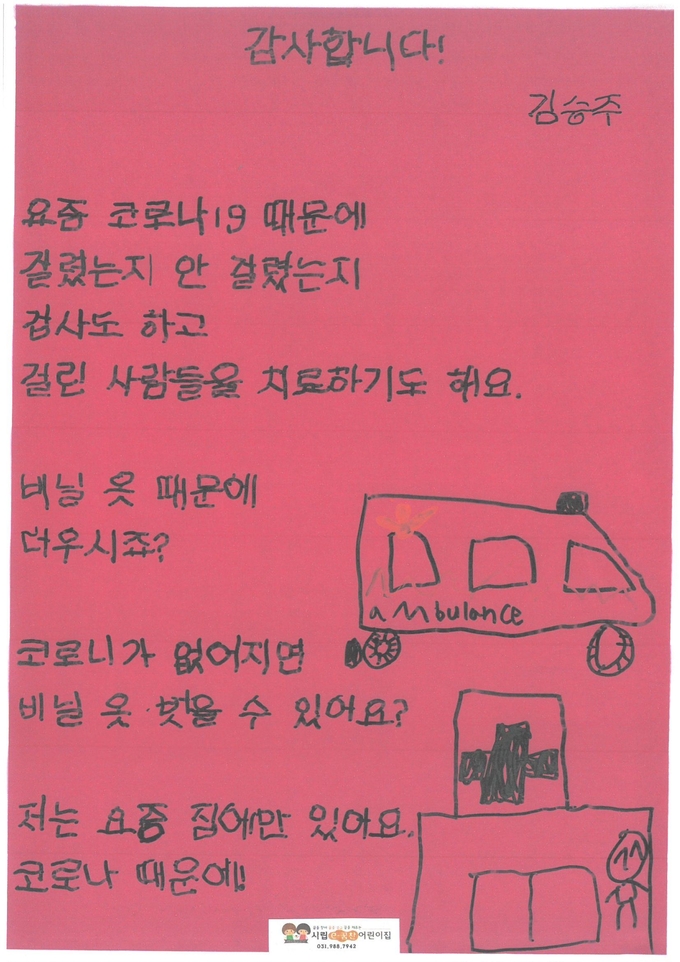 감사합니다!
김승주
요즘 코로나19 때문에
걸렸는지 안 걸렸는지
검사도 하고
걸린 사람들을 치료하기도 해요.
비닐 옷 때문에
더우시죠?
ambulance
코로니가 없어지면
비닐 옷 벗을 수 있어요?
저는 요즘 집에만 있어요.
코로나 때문에!
시립 어린이집
031.988.7942